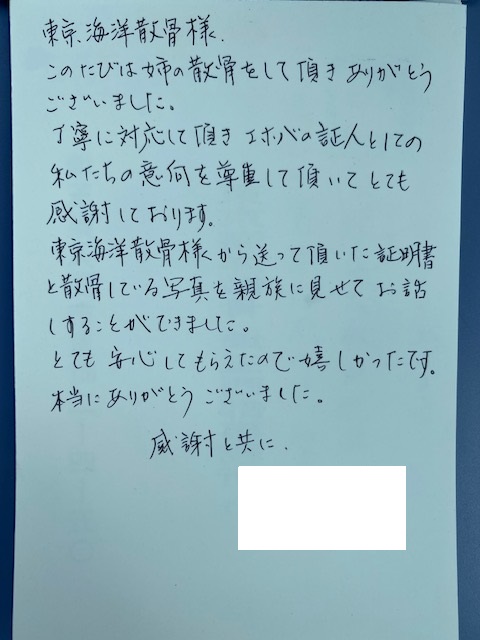 東京海洋散骨様.
このたびは姉の散骨をして頂きありがとう
ございました。
丁寧に対応して頂きエホバの証人としての
私たちの意向を尊重して頂いてとても
感謝しております。
東京海洋散骨様から送って頂いた証明書
と散骨している写真を親族に見せてお話
しすることができました。
とても安心してもらえたので嬉しかったです。
本当にありがとうございました。
感謝と共に.